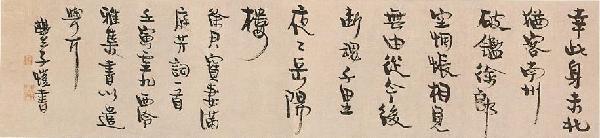 幸此身未北
猶客南州
破鑑徐郎
空惆悵相見
無由從今後
斷魂千里
夜々岳陽
樓
徐君寶妻滿
庭芳詞一首
壬寅重九西泠
雅集書以遣
興耳
豐子愷書